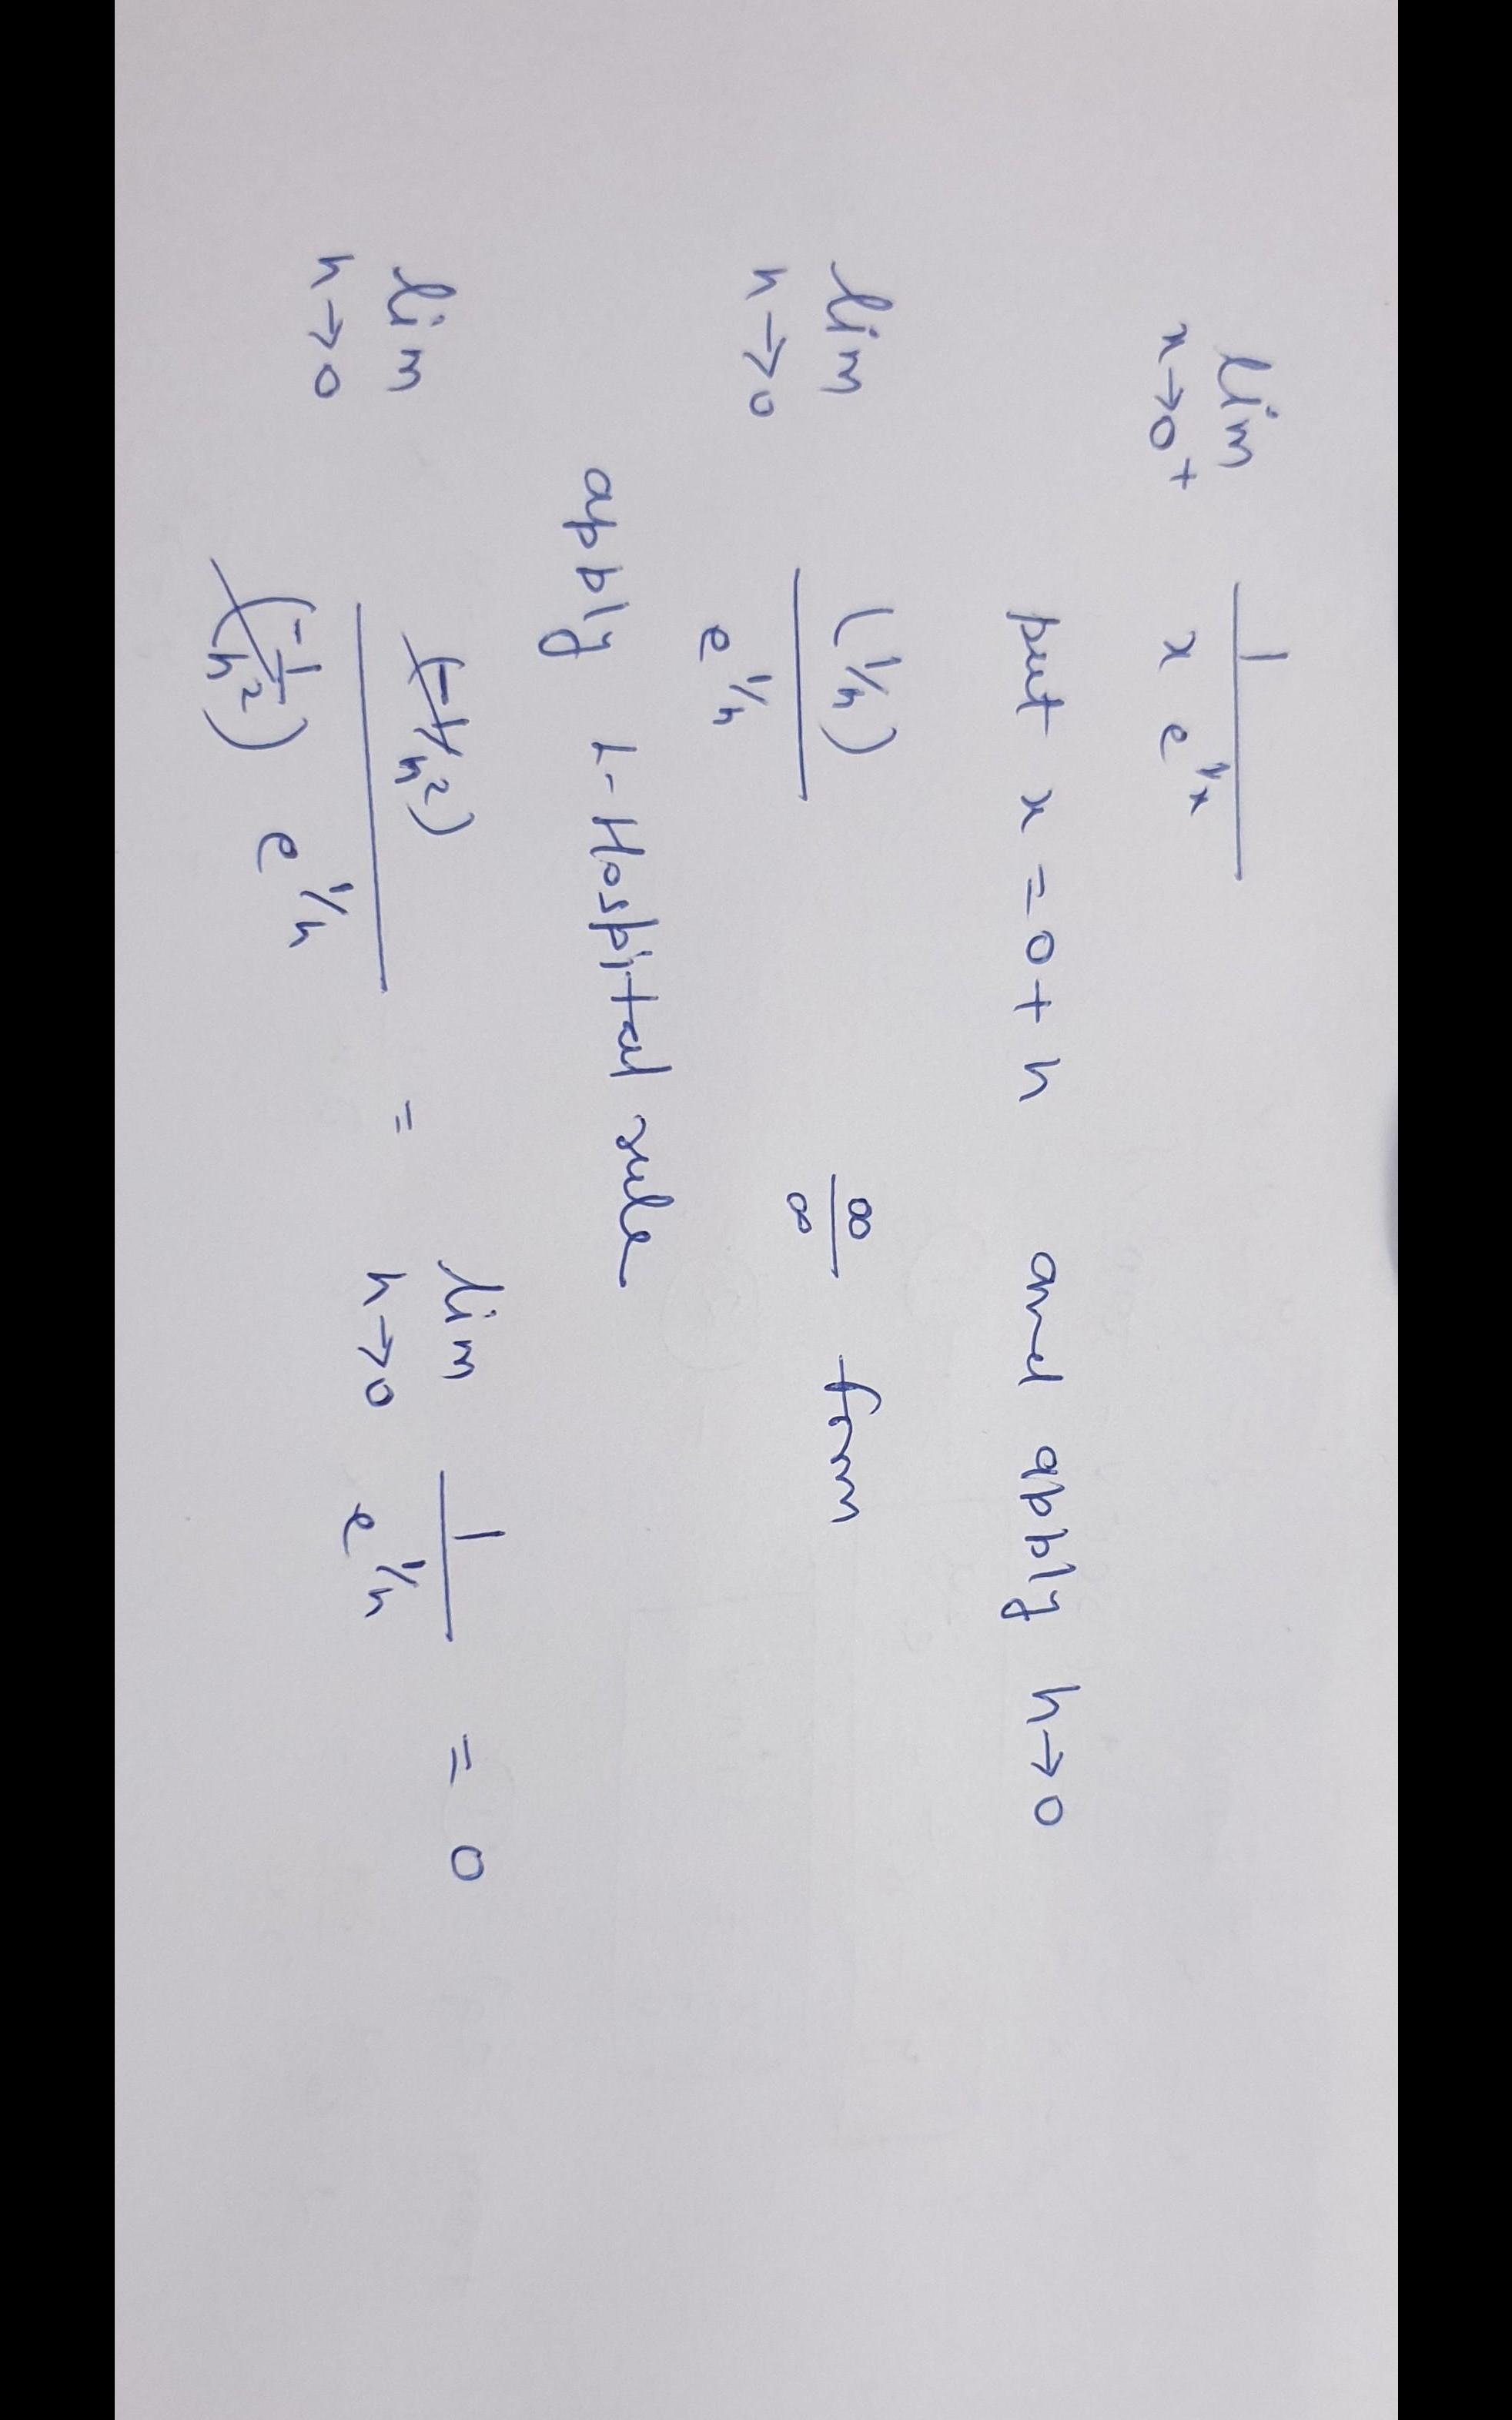 lim x→0⁺ 1 / (x e^(1/x))
put x = 0 + h and apply h→0
lim h→0 (1/h) / e^(1/h) ∞/∞ form
apply L-Hospital rule
lim h→0 (-1/h²) / ((-1/h²) e^(1/h)) = lim h→0 1 / e^(1/h) = 0